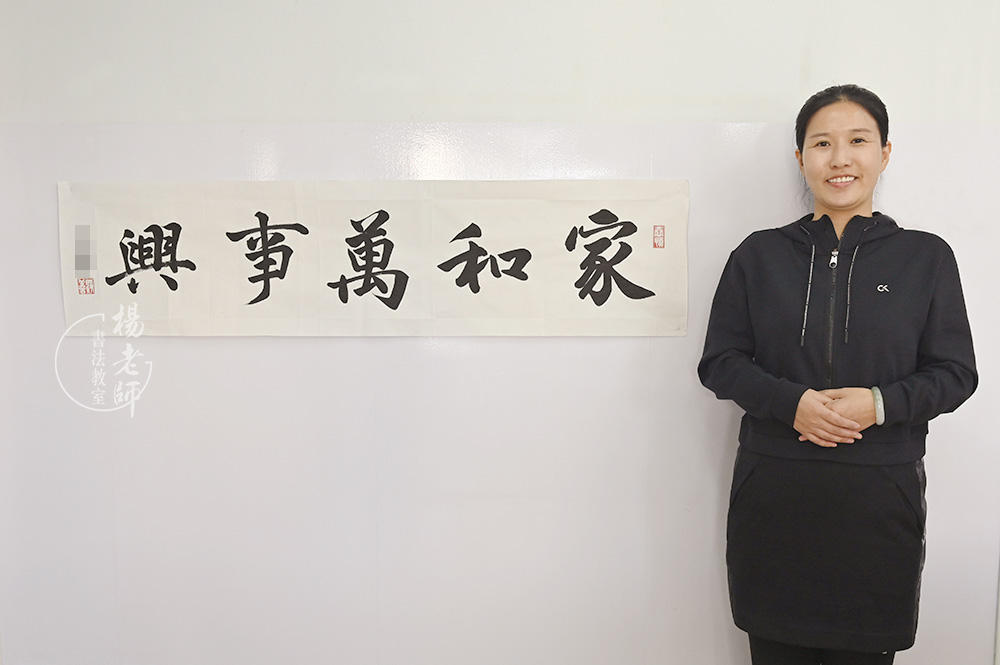 家和萬事興
楊老師
書法教室
CK